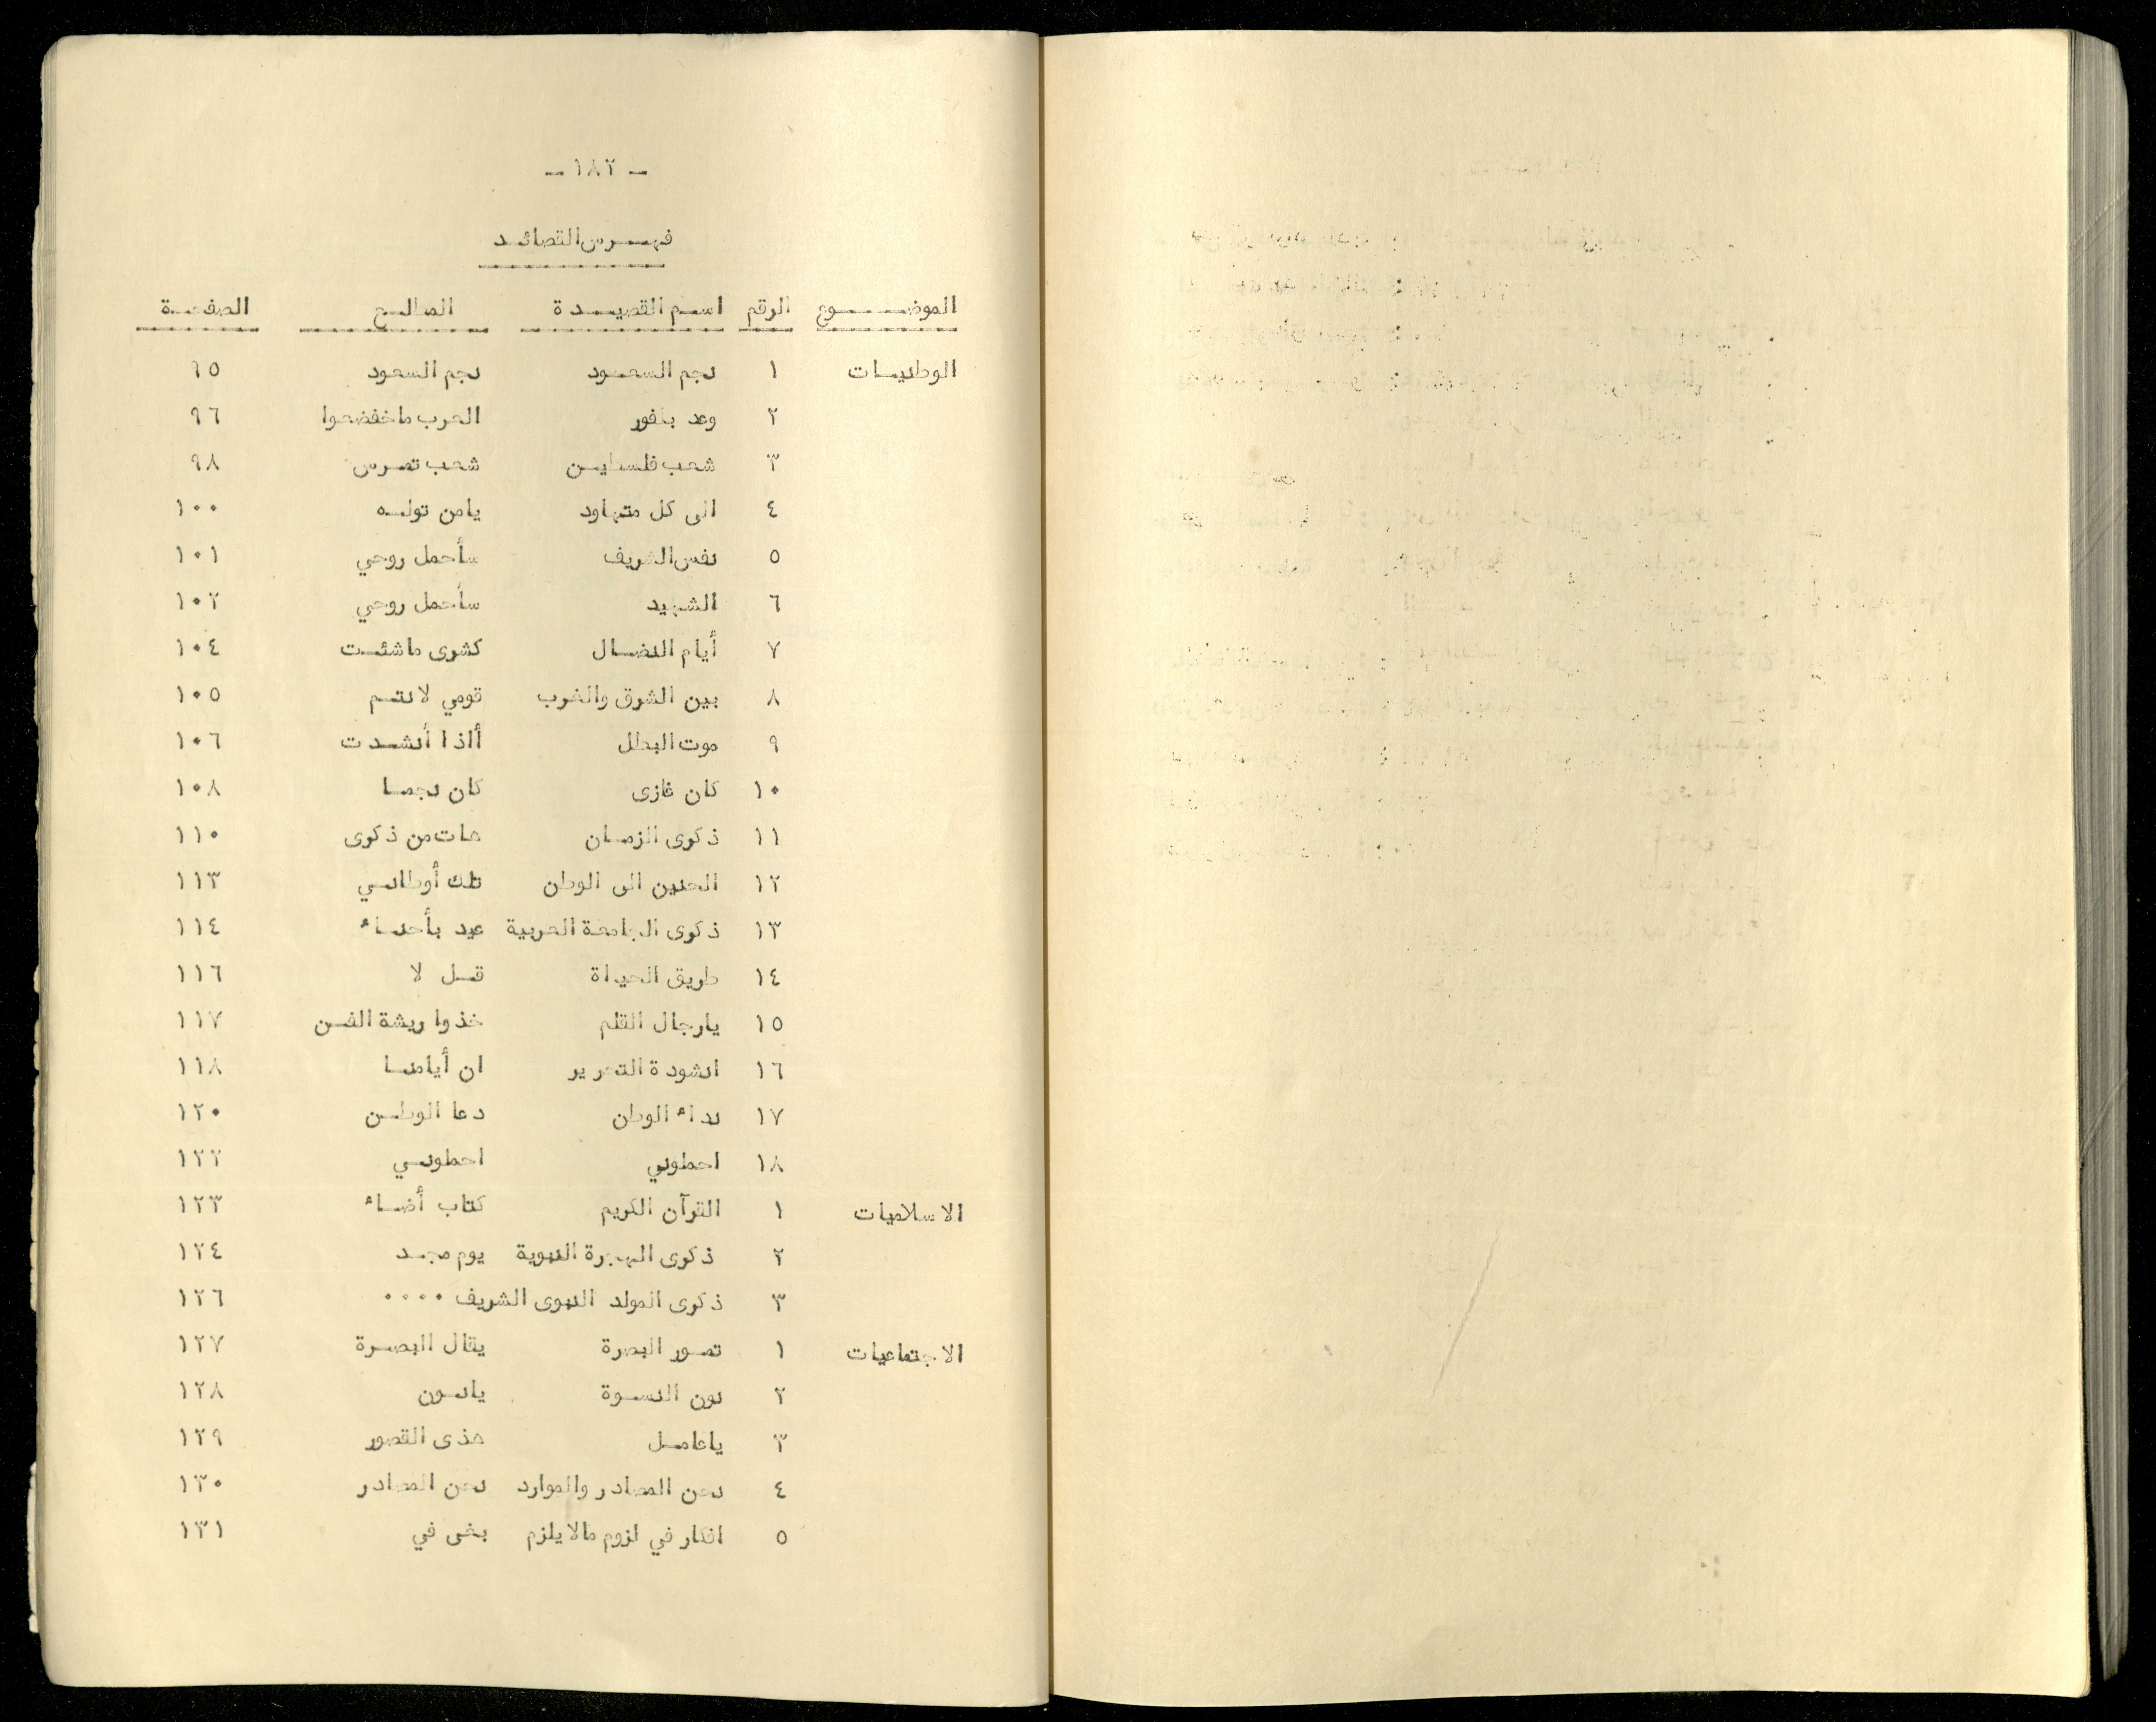 - ١٨٢ -
فهرس القصائد
الموضوع الرقم اسم القصيدة المطلع الصفحة
الوطنيات ١ نجم السعود نجم السعود ٩٥
٢ وعد بلفور العرب ماخفضوا ٩٦
٣ شعب فلسطين شعب تمرس ٩٨
٤ الى كل متهاود يامن توله ١٠٠
٥ نفس الشريف سأحمل روحي ١٠١
٦ الشهيد سأحمل روحي ١٠٢
٧ أيام النضال كشرى ماشئت ١٠٤
٨ بين الشرق والغرب قومي لانتم ١٠٥
٩ موت البطل أاذا أنشدت ١٠٦
١٠ كان غازى كان نجما ١٠٨
١١ ذكرى الزمان هات من ذكرى ١١٠
١٢ الحنين الى الوطن تلك أوطاني ١١٣
١٣ ذكرى الجامعة العربية عيد بأحناء ١١٤
١٤ طريق الحياة قل لا ١١٦
١٥ يارجال القلم خذوا ريشة الفن ١١٧
١٦ انشودة التحرير ان أيامنا ١١٨
١٧ نداء الوطن دعا الوطن ١٢٠
١٨ احملوني احملوني ١٢٢
الاسلاميات ١ القرآن الكريم كتاب أضاء ١٢٣
٢ ذكرى الهجرة النبوية يوم مجد ١٢٤
٣ ذكرى المولد النبوى الشريف ٠٠٠٠ ١٢٦
الاجتماعيات ١ تمور البصرة يقال البصرة ١٢٧
٢ نون النسوة يانون ١٢٨
٣ ياعامل هذى القصور ١٢٩
٤ نحن المصادر والموارد نحن المصادر ١٣٠
٥ افكار في لزوم مالايلزم بغى في ١٣١